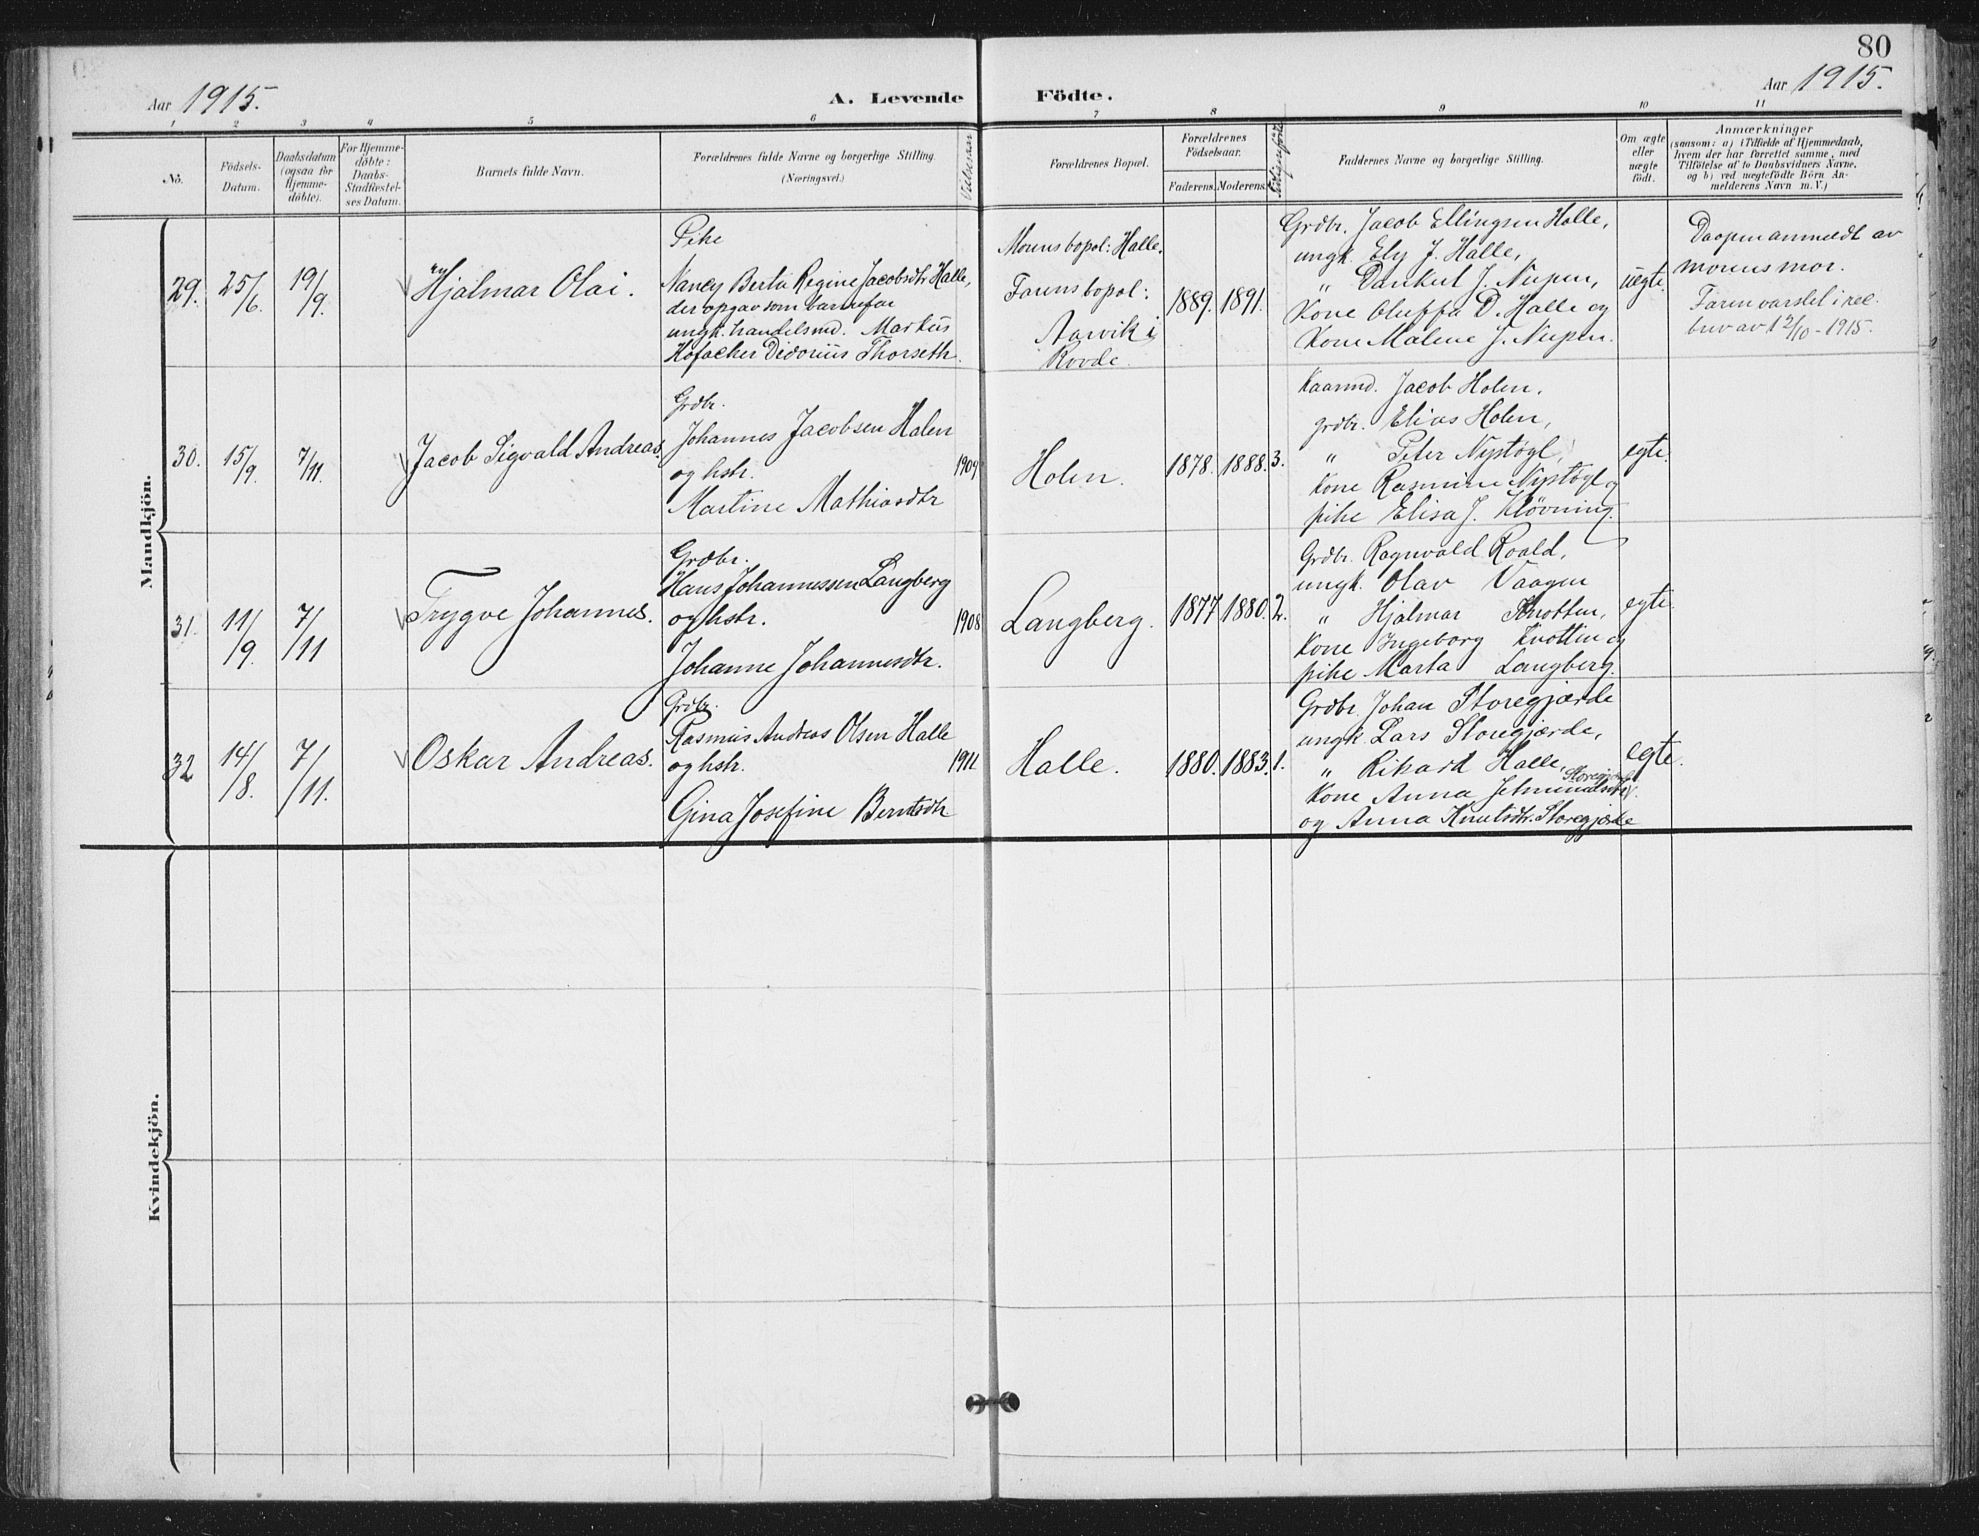 80
Aar 1915.
A. Levende Födte.
Aar 1915.
1 2 3 4 5 6 7 8 9 10 11
No.
Födsels-
Datum.
Daabsdatum
(ogsaa for
Hjemme-
döbte).
For Hjemme-
döbte:
Daabs-
Stadfæstel-
ses Datum.
Barnets fulde Navn.
Forældrenes fulde Navne og borgerlige Stilling.
(Næringsvei.)
Vielsesaar
Forældrenes Bopæl.
Forældrenes
Födselsaar.
Faderens.
Moderens.
Faddernes Navne og borgerlige Stilling.
Om ægte
eller
uægte
födt.
Anmærkninger
(saasom: a) i Tilfælde af Hjemmedaab,
hvem der har forrettet samme, med
Tilföielse af to Daabsvidners Navne,
og b) ved uægtefödte Börn An-
melderens Navn m. V.)
Mandkjön.
29.
25/6.
19/9.
Hjalmar Olai.
Pike
Nancy Berta Regine Jacobsdtr Halle,
der opgav som barnefar
ungk. handelsmd. Markus
Hofacker Didorius Thorseth.
Morens bopol: Halle.
Farens bopol:
Aarvik i
Rovde.
1889.
1891.
Grdbr. Jacob Ellingsen Halle,
ungk. Ely J. Halle,
" Dankert J. Nupen,
Kone Oluffa D. Halle og
Kone Malene J. Nupen.
uegte.
Daapen anmeldt av
morens mor.
Faren varslet i rec.
brev av 12/10-1915.
30.
15/9.
7/11.
Jacob Sigvald Andreas.
Grdbr.
Johannes Jacobsen Holen
og hstr.
Martine Mathiasdtr
1909
Holen.
1878.
1888.
3.
Kaarmd. Jacob Holen,
grdbr. Elias Holen,
" Peter Nystøgl,
Kone Rasmine Nystøgl og
pike Elisa J. Kløvning.
egte.
31.
11/9.
7/11
Trygve Johannes.
Grdbr.
Hans Johannessen Langberg
og hstr.
Johanne Johannesdtr.
1908
Langberg.
1877
1880.
2.
Grdbr. Ragnvald Roald,
ungk. Olav Vaagen
" Hjalmar Knotten,
Kone Ingeborg Knotten og
pike Marta Langberg.
egte.
32
14/8.
7/11.
Oskar Andreas.
Grdbr.
Rasmus Andreas Olsen Halle
og hstr.
Gina Josefine Berntsdtr
1911
Halle.
1880.
1883.
1.
Grdbr. Johan Storegjærde
ungk. Lars Storegjærde,
" Rikard Halle,
Kone Anna Jetmundsdtr
og Anna Knutsdtr. Storegjærde
egte.
Kvindekjön.